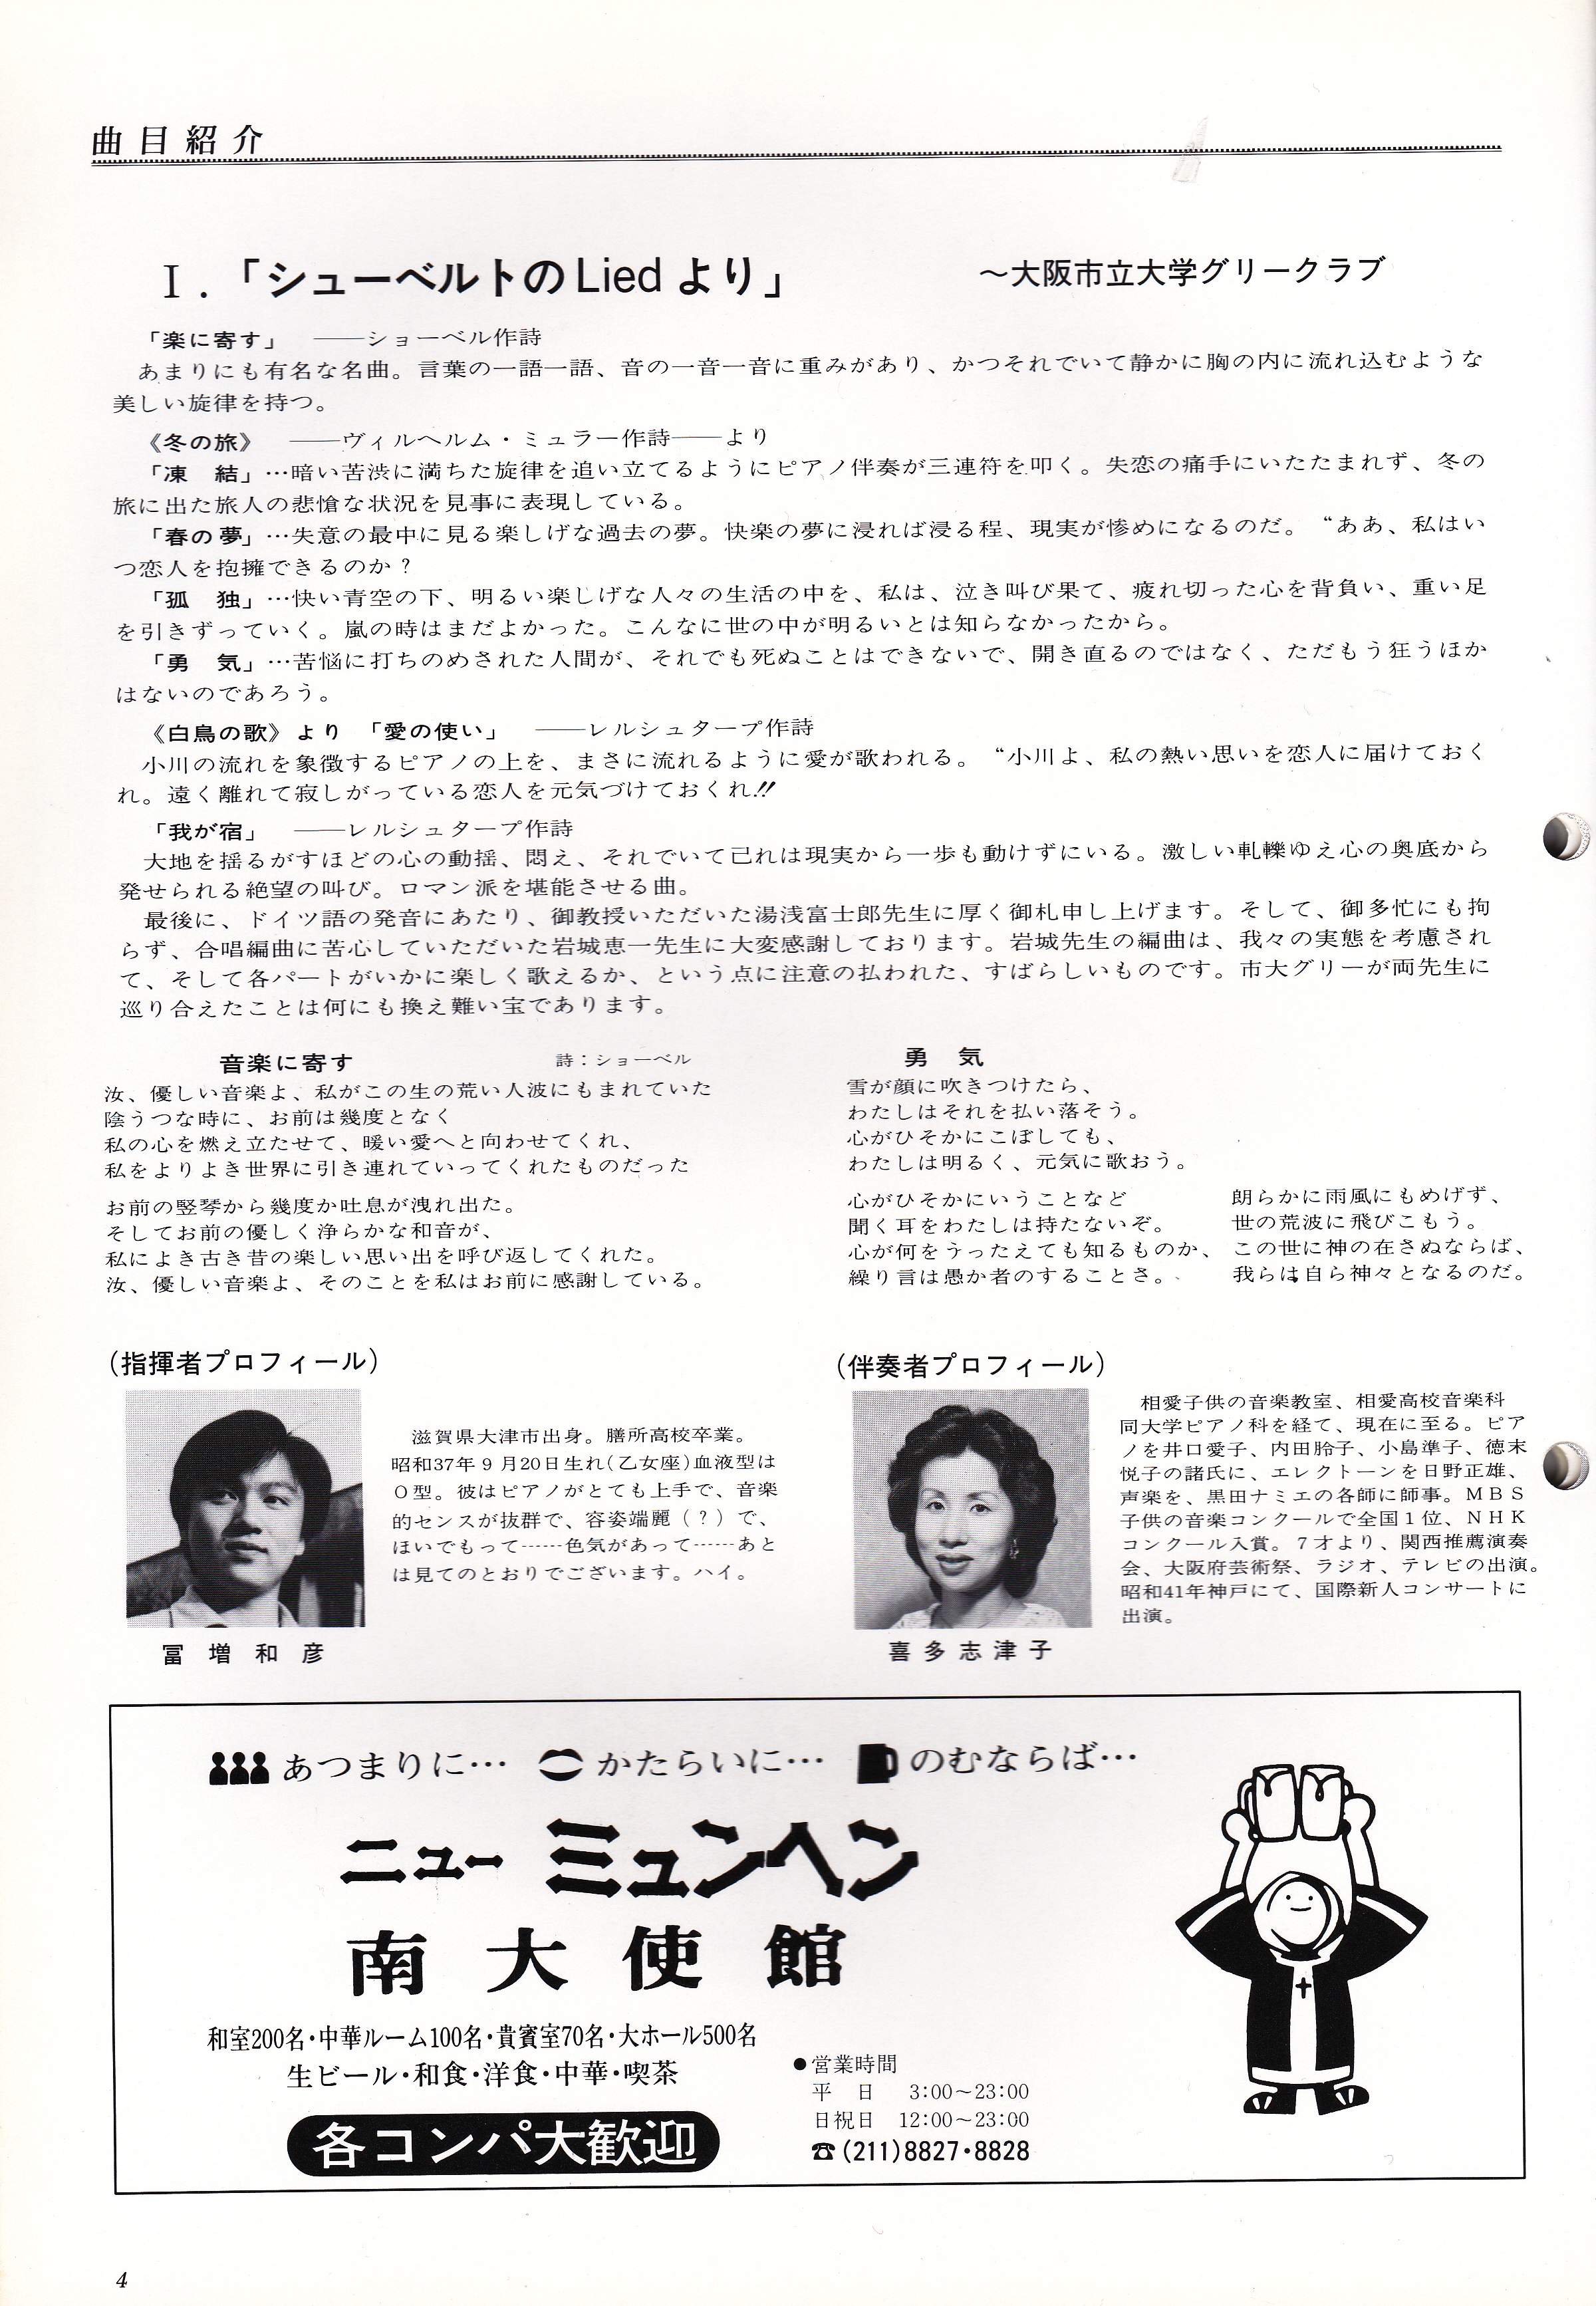 曲目紹介
Ⅰ.「シューベルトのLiedより」　～大阪市立大学グリークラブ
「楽に寄す」　――ショーベル作詩
あまりにも有名な名曲。言葉の一語一語、音の一音一音に重みがあり、かつそれでいて静かに胸の内に流れ込むような
美しい旋律を持つ。
《冬の旅》　――ヴィルヘルム・ミュラー作詩――より
「凍　結」…暗い苦渋に満ちた旋律を追い立てるようにピアノ伴奏が三連符を叩く。失恋の痛手にいたたまれず、冬の
旅に出た旅人の悲愴な状況を見事に表現している。
「春の夢」…失意の最中に見る楽しげな過去の夢。快楽の夢に浸れば浸る程、現実が惨めになるのだ。“ああ、私はい
つ恋人を抱擁できるのか？
「孤　独」…快い青空の下、明るい楽しげな人々の生活の中を、私は、泣き叫び果て、疲れ切った心を背負い、重い足
を引きずっていく。嵐の時はまだよかった。こんなに世の中が明るいとは知らなかったから。
「勇　気」…苦悩に打ちのめされた人間が、それでも死ぬことはできないで、開き直るのではなく、ただもう狂うほか
はないのであろう。
《白鳥の歌》より　「愛の使い」　――レルシュタープ作詩
小川の流れを象徴するピアノの上を、まさに流れるように愛が歌われる。“小川よ、私の熱い思いを恋人に届けておく
れ。遠く離れて寂しがっている恋人を元気づけておくれ!!
「我が宿」　――レルシュタープ作詩
大地を揺るがすほどの心の動揺、悶え、それでいて己れは現実から一歩も動けずにいる。激しい軋轢ゆえ心の奥底から
発せられる絶望の叫び。ロマン派を堪能させる曲。
最後に、ドイツ語の発音にあたり、御教授いただいた湯浅富士郎先生に厚く御札申し上げます。そして、御多忙にも拘
らず、合唱編曲に苦心していただいた岩城恵一先生に大変感謝しております。岩城先生の編曲は、我々の実態を考慮され
て、そして各パートがいかに楽しく歌えるか、という点に注意の払われた、すばらしいものです。市大グリーが両先生に
巡り合えたことは何にも換え難い宝であります。
音楽に寄す　詩：ショーベル
汝、優しい音楽よ、私がこの生の荒い人波にもまれていた
陰うつな時に、お前は幾度となく
私の心を燃え立たせて、暖い愛へと向わせてくれ、
私をよりよき世界に引き連れていってくれたものだった
お前の竪琴から幾度か吐息が洩れ出た。
そしてお前の優しく浄らかな和音が、
私によき古き昔の楽しい思い出を呼び返してくれた。
汝、優しい音楽よ、そのことを私はお前に感謝している。
勇　気
雪が顔に吹きつけたら、
わたしはそれを払い落そう。
心がひそかにこぼしても、
わたしは明るく、元気に歌おう。
心がひそかにいうことなど
聞く耳をわたしは持たないぞ。
心が何をうったえても知るものか、
繰り言は愚か者のすることさ。
朗らかに雨風にもめげず、
世の荒波に飛びこもう。
この世に神の在さぬならば、
我らは自ら神々となるのだ。
(指揮者プロフィール)
滋賀県大津市出身。膳所高校卒業。
昭和37年9月20日生れ(乙女座)血液型は
O型。彼はピアノがとても上手で、音楽
的センスが抜群で、容姿端麗(？)で、
ほいでもって……色気があって……あと
は見てのとおりでございます。ハイ。
冨増和彦
(伴奏者プロフィール)
相愛子供の音楽教室、相愛高校音楽科
同大学ピアノ科を経て、現在に至る。ピア
ノを井口愛子、内田朎子、小島準子、徳末
悦子の諸氏に、エレクトーンを日野正雄、
声楽を、黒田ナミエの各師に師事。MBS
子供の音楽コンクールで全国1位、NHK
コンクール入賞。7才より、関西推薦演奏
会、大阪府芸術祭、ラジオ、テレビの出演。
昭和41年神戸にて、国際新人コンサートに
出演。
喜多志津子
あつまりに…　かたらいに…　のむならば…
ニューミュンヘン
南大使館
和室200名・中華ルーム100名・貴賓室70名・大ホール500名
生ビール・和食・洋食・中華・喫茶
各コンパ大歓迎
●営業時間
平　日　3:00〜23:00
日祝日　12:00〜23:00
☎(211)8827・8828
4